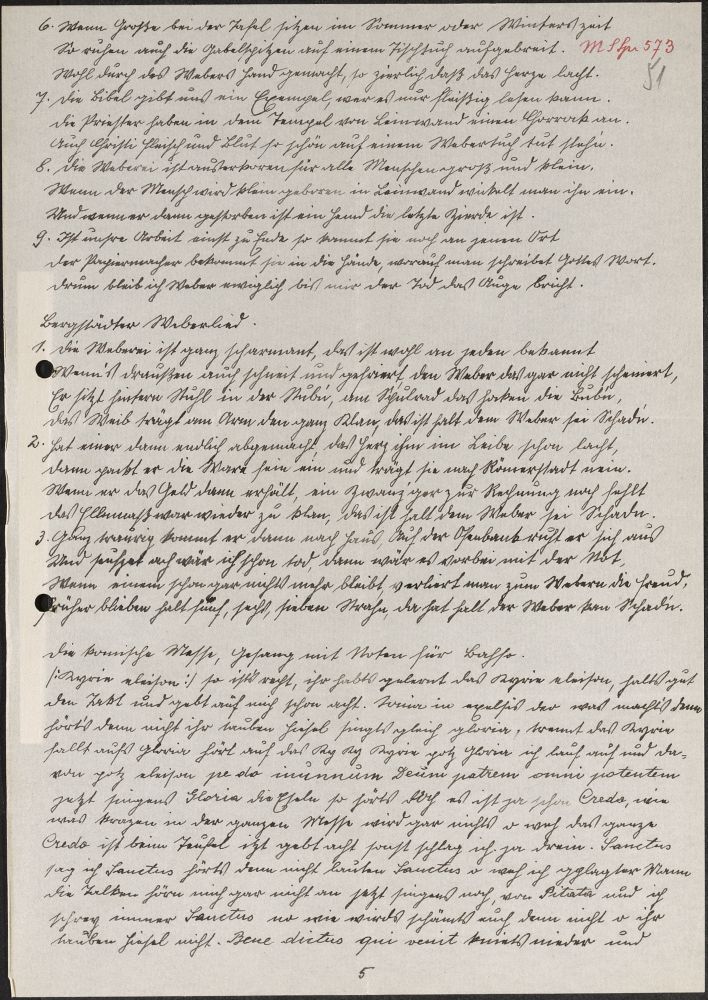 6. Wenn Große bei der Tafel sitzen im Sommer oder Winterszeit
So ruhen auch die Gabelspitzen auf einem Tischtuch aufgebreit. MSSp. 573
51
Wohl durch des Webers Hand gemacht, so zierlich daß das Herze lacht.
7. Die Bibel gibt uns ein Exempel, wer es nur fleißig lesen kann.
Die Priester haben in dem Tempel von Leinwand einen Chorrock an.
Auch Christi Fleisch und Blut so schön auf einem Webertuch tut stehn.
8. Die Weberei ist auserkoren für alle Menschen groß und klein.
Wenn der Mensch wird klein geboren in Leinwand wickelt man ihn ein.
Und wenn er dann gestorben ist ein Hemd die letzte Zierde ist.
9. Ist unsre Arbeit einst zu Ende so kommt sie noch an jenen Ort
Der Papiermacher bekommt sie in die Hände, worauf man schreibet Gottes Wort.
Drum bleib ich Weber ewiglich bis mir der Tod das Auge bricht.
Bergstädter Weberlied.
1. Die Weberei ist ganz scharmant, das ist wohl an jeden bekannt
Wenn's draußen auch schneit und gefriert, den Weber das gar nicht scheniert,
Er sitzt hintern Stuhl in der Stubn, am Spulrad das hocken die Bubn,
Das Weib trägt am Arm den ganz Klan, das ist halt dem Weber sei Schadn.
2. Hat einer dann endlich abgemacht, das Herz ihm im Leibe schon lacht,
dann packt er die Ware fein ein und trägt sie nach Römerstadt nein.
Wenn er das Geld dann erhält, ein Zwanziger zur Rechnung noch fehlt
das Ellenmaß war wieder zu klan, das ist halt dem Weber sei Schadn.
3. Ganz traurig kommt er dann nach Haus Auf der Ofenbank ruht er sich aus
Und seufzet ach wär ich schon tod, dann wär es vorbei mit der Not,
Wenn einem schon gar nichts mehr bleibt, verliert man zum Webern die Freud,
Früher blieben halt fünf, sechs, sieben Strahn, da hat halt der Weber kan Schadn.
Die komische Messe, Gesang mit Noten für Basso.
/: Kyrie eleison :/ so ists recht, ihr habts gelernt das Kyrie eleison, halts gut
den Takt und gebt auf mich schon acht. in exelsis deo was machts denn
hörts denn nicht ihr tauben Hiesel singts gleich gloria, trennt das Kyrie
fallt aufs Gloria hört auf das Ky Ky Kyrie potz Gloria ich lauf auf und da-
von potz eleison Deum patrem omni potentem
jetzt singens Gloria die Eseln so hörts doch es ist ja schon Credo, wie
was in der ganzen Messe wird gar nichts o weh das ganze
Credo ist beim Teufel itzt gebt acht sonst schlag ich ja drein. Sanctus
sag ich Sanctus hörts denn nicht lauten Sanctus o weh ich gplagter Mann
die Talken hörn mich gar nicht an jetzt singens noch, von Pilato und ich
schrey immer Sanctus no wie wirds schämts euch denn nicht o ihr
tauben Hiesel nicht. Bene dictus qui venit kniets nieder und
5